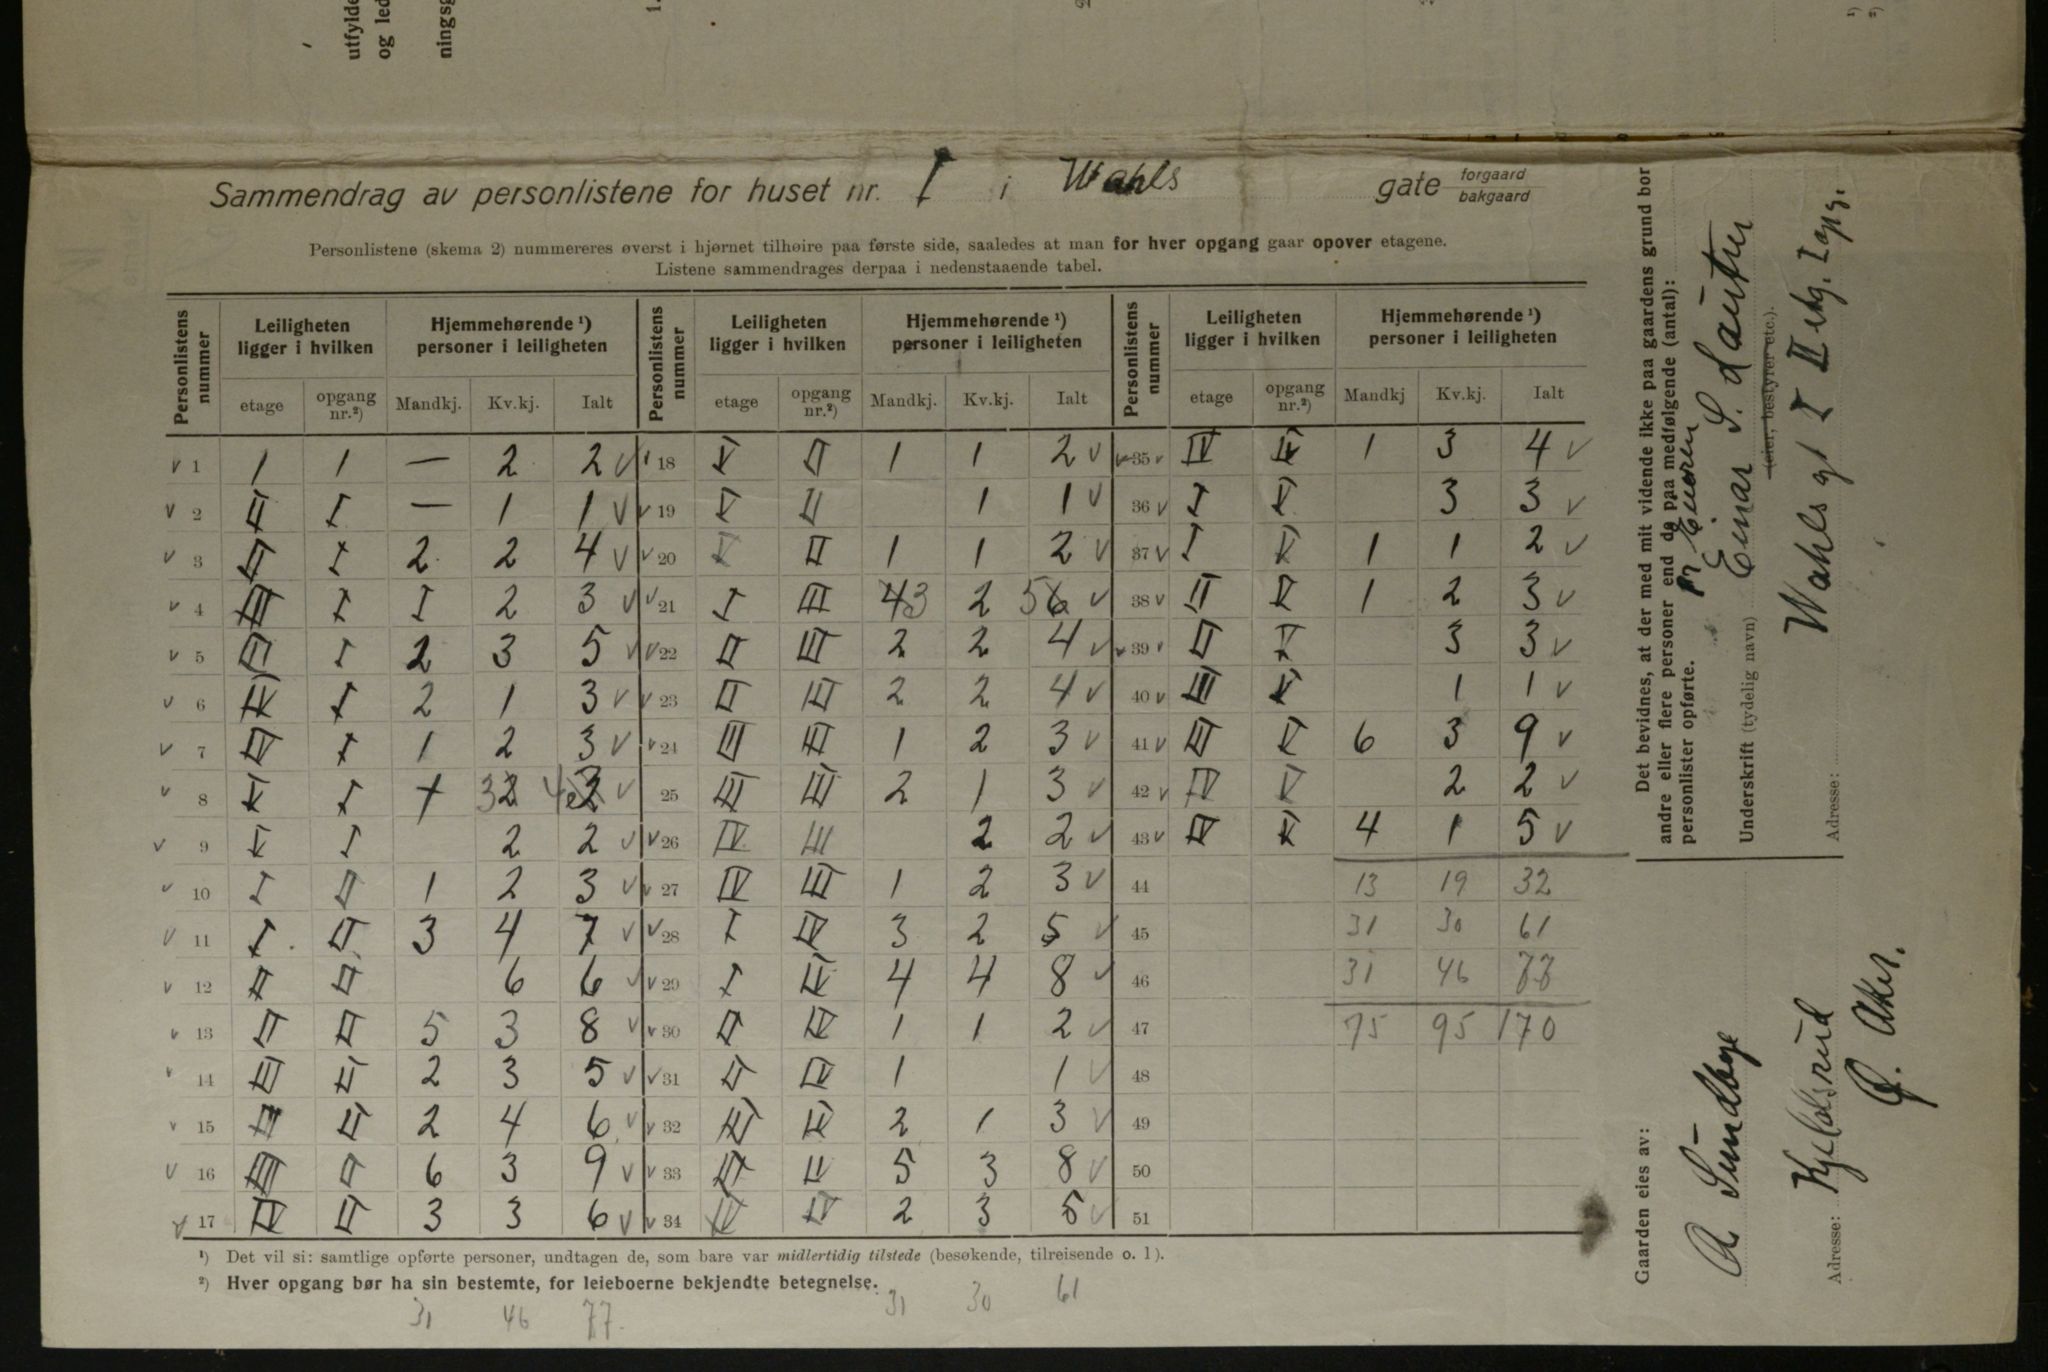 utfylde
og led
ningsg
Sammendrag av personlistene for huset nr. I i Wahls gate forgaard
bakgaard
Personlistene (skema 2) nummereres øverst i hjørnet tilhøire paa første side, saaledes at man for hver opgang gaar opover etagene.
Listene sammendrages derpaa i nedenstaaende tabel.
Personlistens nummer | Leiligheten ligger i hvilken | Hjemmehørende ¹) personer i leiligheten | Personlistens nummer | Leiligheten ligger i hvilken | Hjemmehørende ¹) personer i leiligheten | Personlistens nummer | Leiligheten ligger i hvilken | Hjemmehørende ¹) personer i leiligheten
etage | opgang nr.²) | Mandkj. | Kv.kj. | Ialt | etage | opgang nr.²) | Mandkj. | Kv.kj. | Ialt | etage | opgang nr.²) | Mandkj | Kv.kj. | Ialt
1 | 1 | 1 | — | 2 | 2 | 18 | V | II | 1 | 1 | 2 | 35 | IV | IV | 1 | 3 | 4
2 | II | I | — | 1 | 1 | 19 | V | II | | 1 | 1 | 36 | I | V | | 3 | 3
3 | II | I | 2 | 2 | 4 | 20 | V | II | 1 | 1 | 2 | 37 | I | V | 1 | 1 | 2
4 | III | I | I | 2 | 3 | 21 | I | III | 43 | 2 | 56 | 38 | II | V | 1 | 2 | 3
5 | III | I | 2 | 3 | 5 | 22 | II | III | 2 | 2 | 4 | 39 | II | V | | 3 | 3
6 | IV | I | 2 | 1 | 3 | 23 | II | III | 2 | 2 | 4 | 40 | III | V | | 1 | 1
7 | IV | I | 1 | 2 | 3 | 24 | III | III | 1 | 2 | 3 | 41 | III | V | 6 | 3 | 9
8 | V | I | 1 | 32 | 43 | 25 | III | III | 2 | 1 | 3 | 42 | IV | V | | 2 | 2
9 | V | I | | 2 | 2 | 26 | IV | III | | 2 | 2 | 43 | IV | V | 4 | 1 | 5
10 | I | II | 1 | 2 | 3 | 27 | IV | III | 1 | 2 | 3 | 44 | | | 13 | 19 | 32
11 | I | II | 3 | 4 | 7 | 28 | I | IV | 3 | 2 | 5 | 45 | | | 31 | 30 | 61
12 | II | II | | 6 | 6 | 29 | I | IV | 4 | 4 | 8 | 46 | | | 31 | 46 | 77
13 | II | II | 5 | 3 | 8 | 30 | II | IV | 1 | 1 | 2 | 47 | | | 75 | 95 | 170
14 | III | II | 2 | 3 | 5 | 31 | II | IV | 1 | | 1 | 48
15 | III | II | 2 | 4 | 6 | 32 | III | IV | 2 | 1 | 3 | 49
16 | III | II | 6 | 3 | 9 | 33 | III | IV | 5 | 3 | 8 | 50
17 | IV | II | 3 | 3 | 6 | 34 | IV | IV | 2 | 3 | 5 | 51
¹) Det vil si: samtlige opførte personer, undtagen de, som bare var midlertidig tilstede (besøkende, tilreisende o. l).
²) Hver opgang bør ha sin bestemte, for leieboerne bekjendte betegnelse.
31 46 77 31 30 61
Det bevidnes, at der med mit vidende ikke paa gaardens grund bor
andre eller flere personer end de paa medfølgende (antal):
personlister opførte.
Underskrift (tydelig navn) Einar S. Lautin
(eier, bestyrer etc.).
Adresse: Wahls gt I II etg. I opg.
Gaarden eies av:
A Sundbye
Adresse: Kjeldsrud
Ø. Aker.